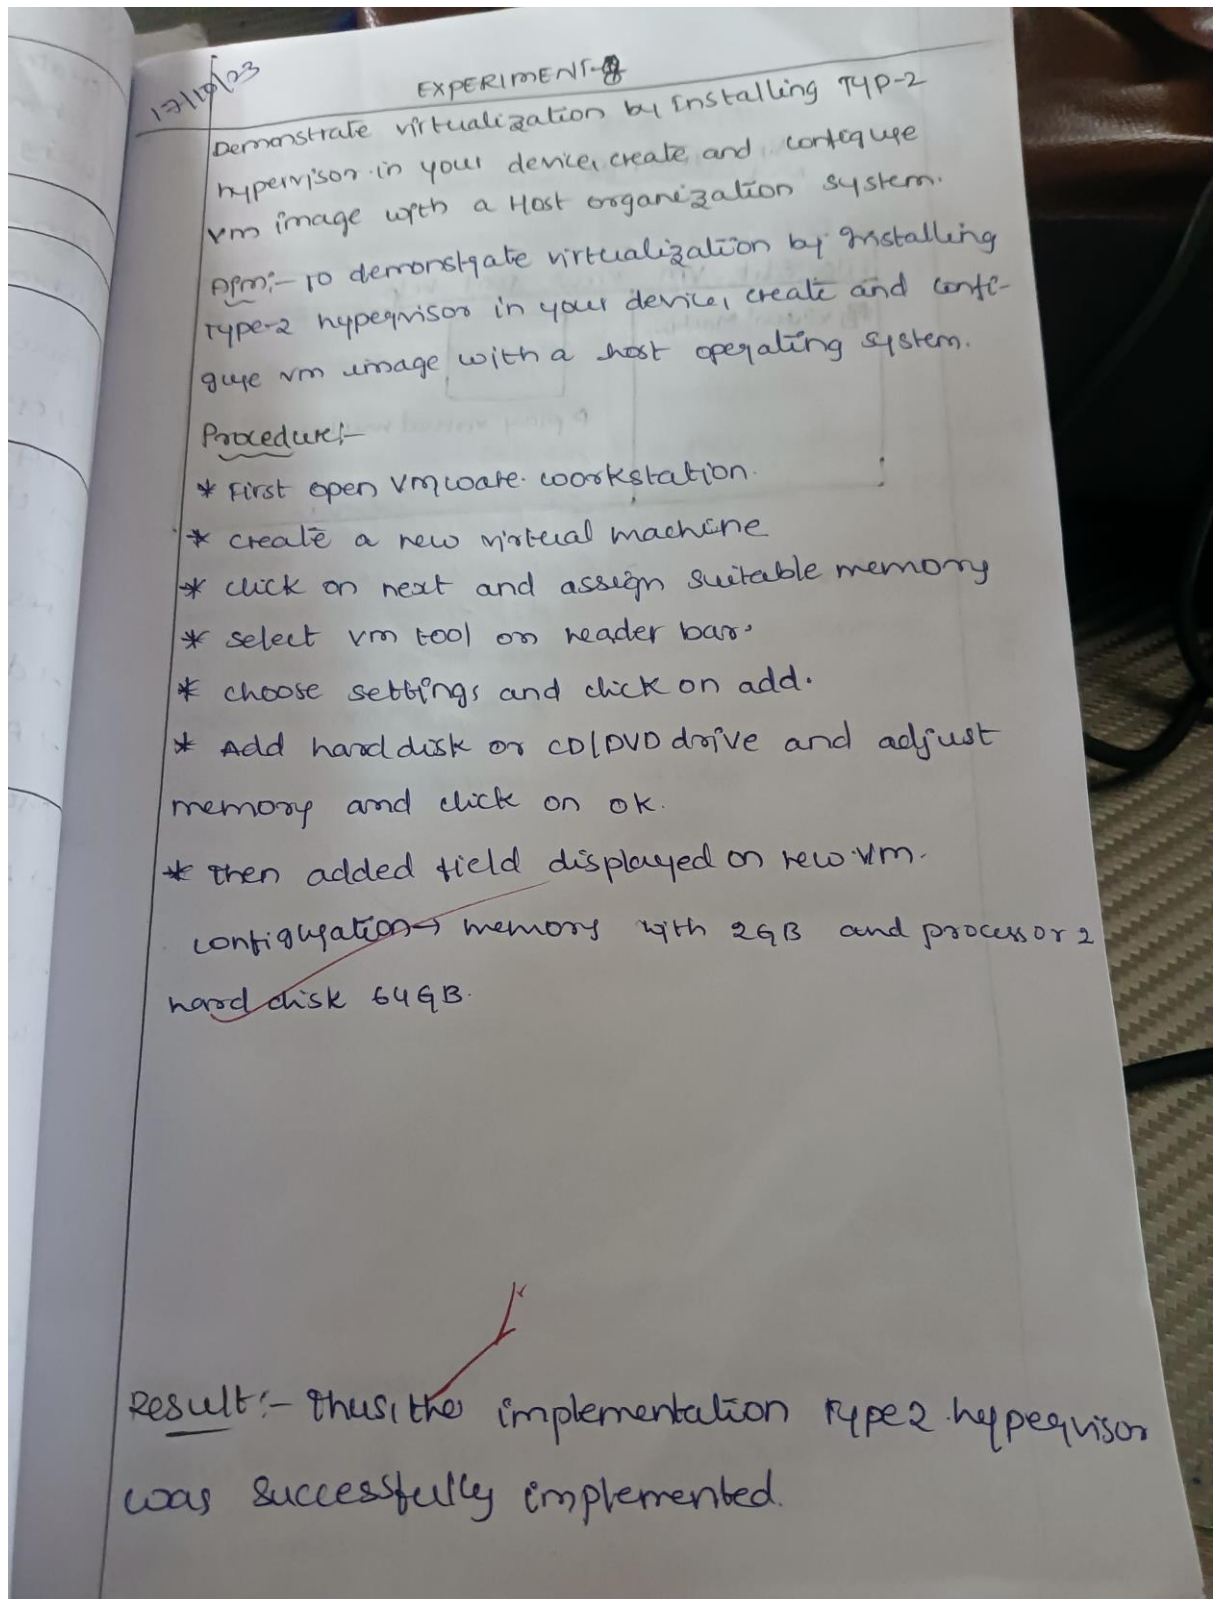 17/10/23
EXPERIMENT-8
Demonstrate virtualization by Installing TYP-2
hypervisor in your device, create and configure
vm image with a Host organization system.
Aim:- To demonstrate virtualization by Installing
Type-2 hypervisor in your device, create and confi-
gure vm image with a host operating system.
Procedure:-
* First open vmware workstation.
* create a new virtual machine
* click on next and assign suitable memory
* select vm tool on header bar.
* choose settings and click on add.
* Add hard disk or CD/DVD drive and adjust
memory and click on ok.
* Then added field displayed on new vm.
configuration → memory with 2GB and processor 2
hard disk 64GB.
Result:- Thus, the implementation Type 2 hypervisor
was successfully implemented.